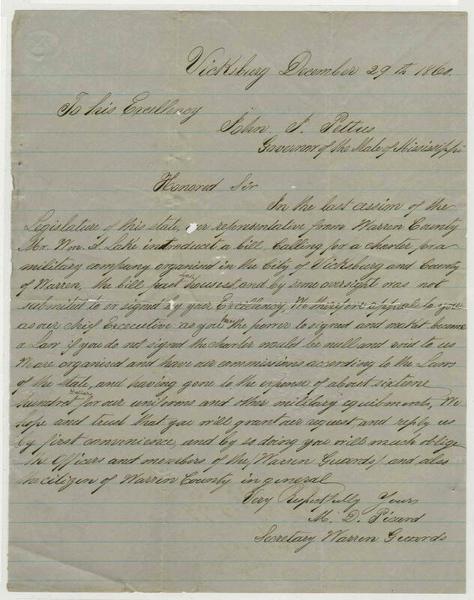 Vicksburg December 29th 1860.
To his Excellency
John J. Pettus
Governor of the State of Mississippi
Honored Sir
In the last assim of the
Legislature of this state, our representative from Warren County
Mr. Wm. A. Lake introduct a bill Calling for a charter for a
military company organised in the City of Vicksburg and County
of Warren, the bill past houses and by some oversight was not
submited to or signed by your Excellency, We therefore appeale to you
as our chief Excecutive as you have the power to signed and make it become
a Law if you do not signed the charter would be null and void to us
We are organised and have our commissions according to the Laws
of the State, and having gone to the expence of about sixteen
hundred Dollars for our uniforms and other military equibments, We
hope and trust that you will grant our request and reply us
by first convenience, and by so doing you will much oblige
the Officers and members of the (Warren Guards) and also
the citizen of Warren County in general
Very Respectfully Yours
M. D. Picard
Secretary Warren Guards